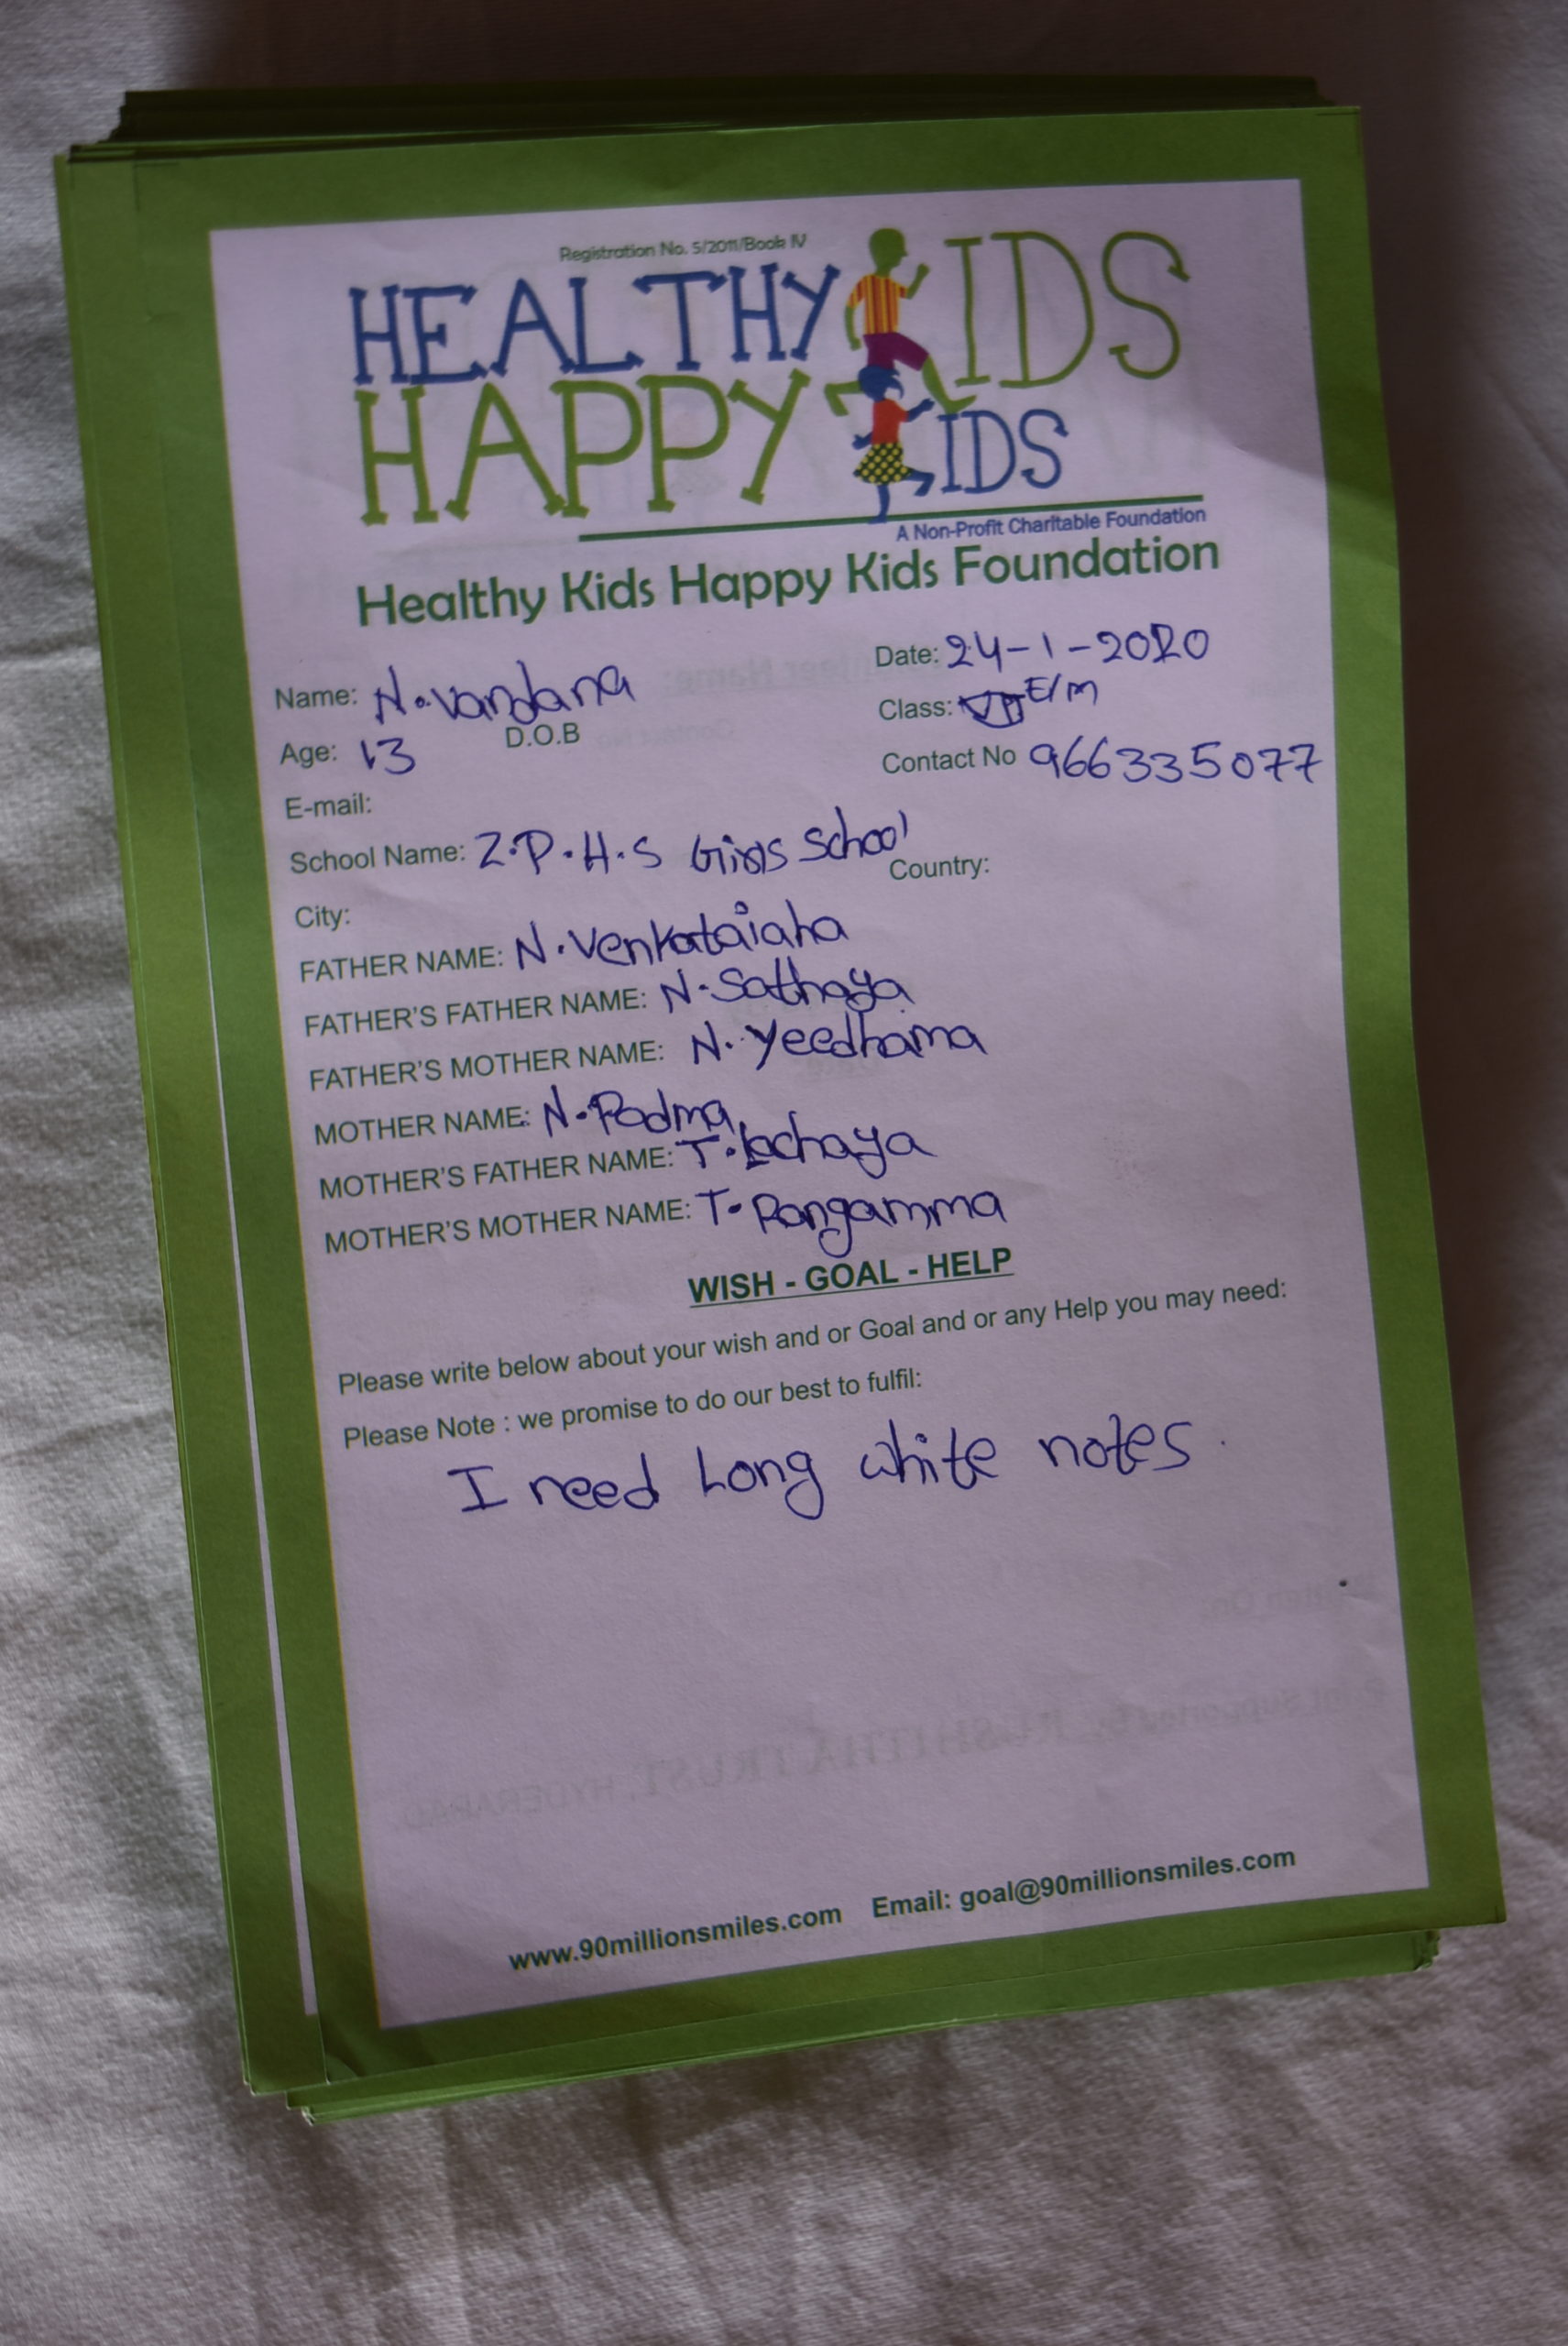 Registration No. 5/2011/Book IV
HEALTHY KIDS
HAPPY KIDS
A Non-Profit Charitable Foundation
Healthy Kids Happy Kids Foundation
Date: 24-1-2020
Name: N.vandana
Class: E/m
Age: 13 D.O.B
Contact No 966335077
E-mail:
School Name: Z.P.H.S Girls School
Country:
City:
FATHER NAME: N.Venkataiaha
FATHER'S FATHER NAME: N.Sathaya
FATHER'S MOTHER NAME: N.Yeedhama
MOTHER NAME: N.Padma
MOTHER'S FATHER NAME: T.lachaya
MOTHER'S MOTHER NAME: T.Rangamma
WISH - GOAL - HELP
Please write below about your wish and or Goal and or any Help you may need:
Please Note : we promise to do our best to fulfil:
I need Long white notes.
www.90millionsmiles.com Email: goal@90millionsmiles.com